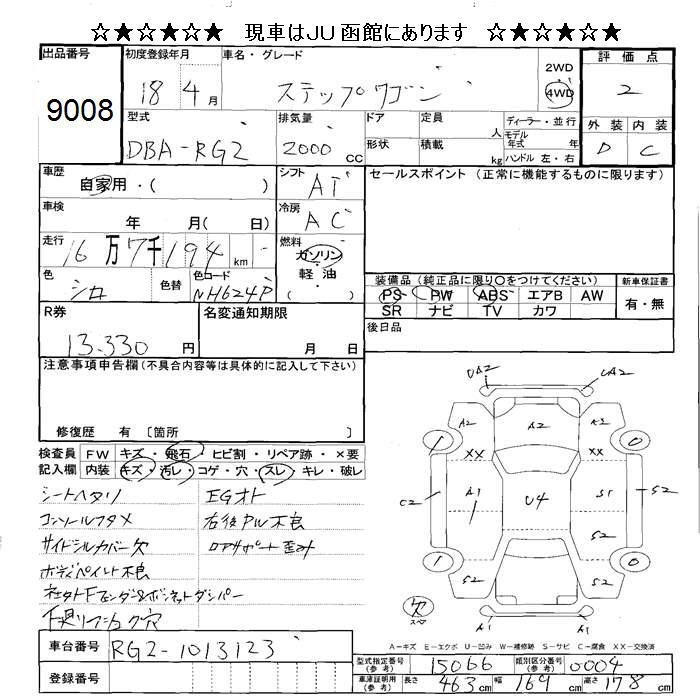 ☆★☆★☆★ 現車はJU函館にあります ☆★☆★☆★
出品番号 初度登録年月 車名・グレード 2WD 評価点
9008 18 4月 ステップワゴン 4WD 2
型式 排気量 ドア 定員 人 ディーラー・並行 外装 内装
DBA-RG2 2000CC 形状 積載 kg モデル年式 年 ハンドル 左・右 D C
車歴 自家用・( ) シフト AT セールスポイント(正常に機能するものに限ります)
車検 年 月( 日) 冷房 AC
走行 16万7千194km 燃料 ガソリン 軽油 ( )
色 シロ 色替 色コード NH624P
装備品(純正品に限り○をつけてください) 新車保証書
PS PW ABS エアB AW 有・無
SR ナビ TV カワ
R券 13.330円 名変通知期限 月 日 後日品
注意事項申告欄(不具合内容等は具体的に記入して下さい)
修復歴 有 〔箇所 〕
検査員記入欄 FW キズ・飛石・ヒビ割・リペア跡・×要
内装 キズ・汚レ・コゲ・穴・スレ・キレ・破レ
シートヘタリ EGオト
コンソールフタメ 右後P.W不良
サイドシルカバー欠 ロアサポート歪み
ボディペイント不良
UA2 UA2
A2 A2 A2
XX XX
C2 A1 U4 S1 S2
S2
S2 S2
欠 スペア A1 A1
A=キズ E=エクボ U=凹み W=補修跡 S=サビ C=腐食 XX=交換済
車台番号 RG2-1013123
登録番号
型式指定番号(参考) 15066 類別区分番号(参考) 0004
車庫証明用(参考) 長さ 463cm 幅 169cm 高さ 178cm